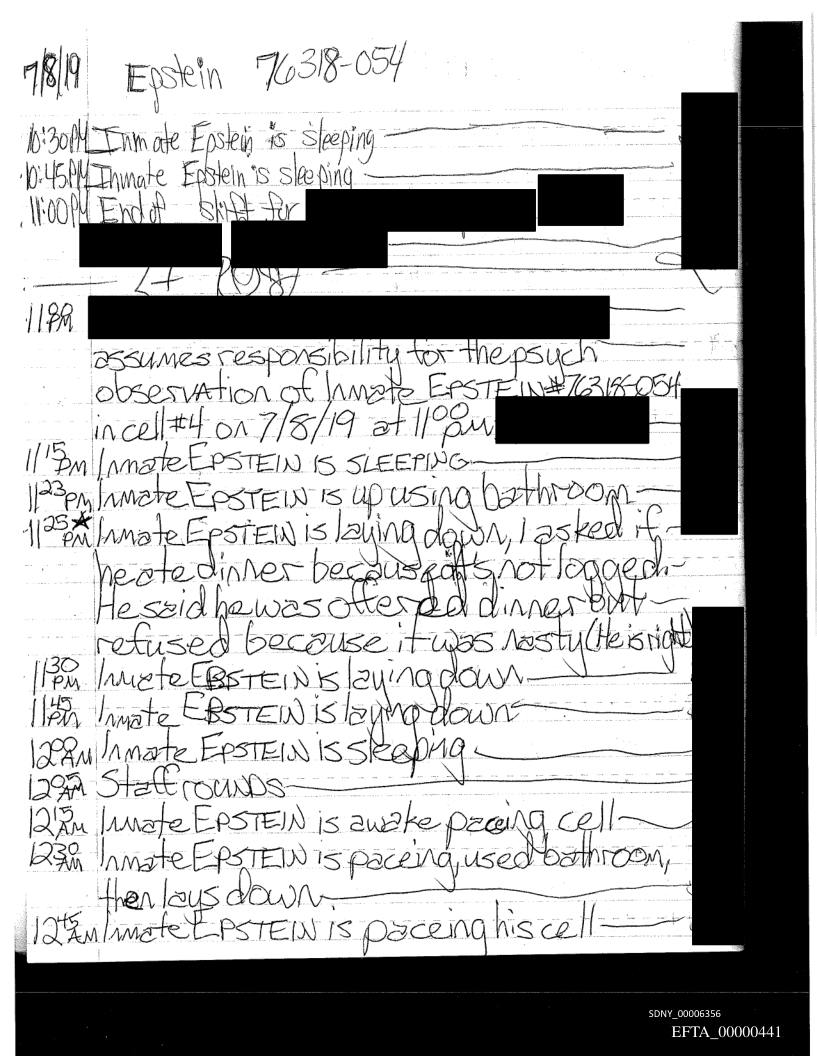 7/8/19 Epstein 76318-054
10:30PM Inmate Epstein is sleeping
10:45PM Inmate Epstein is sleeping
11:00PM End of shift for
1100 PM
assumes responsibility for the psych
observation of Inmate EPSTEIN #76318-054
in cell #4 on 7/8/19 at 1100 pm
1115 PM Inmate EPSTEIN IS SLEEPING
1123 PM Inmate EPSTEIN is up using bathroom
1125 PM ★ Inmate EPSTEIN is laying down, I asked if
he ate dinner because it's not logged.
He said he was offered dinner but
refused because it was nasty (He is right)
1130 PM Inmate EPSTEIN is laying down
1145 PM Inmate EPSTEIN is laying down
1200 AM Inmate EPSTEIN is sleeping
1205 AM Staff rounds
1215 AM Inmate EPSTEIN is awake paceing cell
1230 AM Inmate EPSTEIN is paceing, used bathroom,
then lays down.
1245 AM Inmate EPSTEIN is paceing his cell
SDNY_00006356
EFTA_00000441